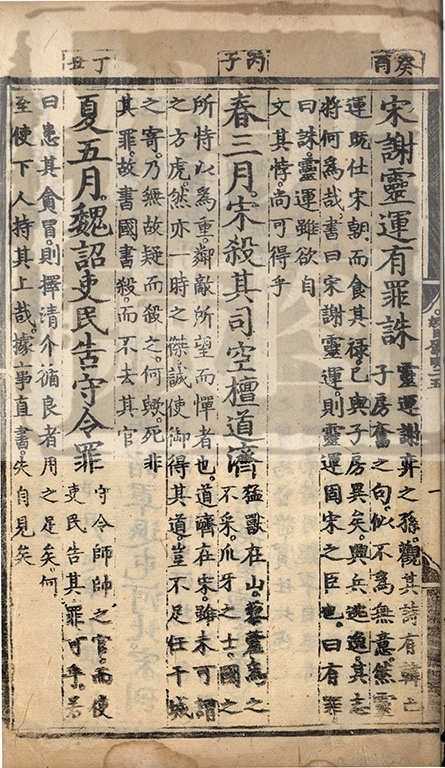 癸酉
宋謝靈運有罪誅
靈運謝弈之孫觀其詩有韓亡
子房奮之句似不為無意然靈
運既仕宋朝而食其祿已與子房異矣興兵逃逸其志
將何為哉書曰宋謝靈運則靈運固宋之臣也曰有罪
曰誅靈運雖欲自
文其悖尚可得乎
丙子
春三月宋殺其司空檀道濟
猛獸在山藜藿為之
不采爪牙之士國之
所恃以為重鄰敵所望而憚者也道濟在宋雖未可謂
之方虎然亦一時之傑誠使御得其道豈不足任干城
之寄乃無故疑而殺之何歟死非
其罪故書國書殺而不去其官
丁丑
夏五月魏詔吏民告守令罪
守令師帥之官而使
吏民告其罪可乎若
曰患其貪冒則擇清介循良者用之足矣何
至使下人持其上哉據事直書失自見矣